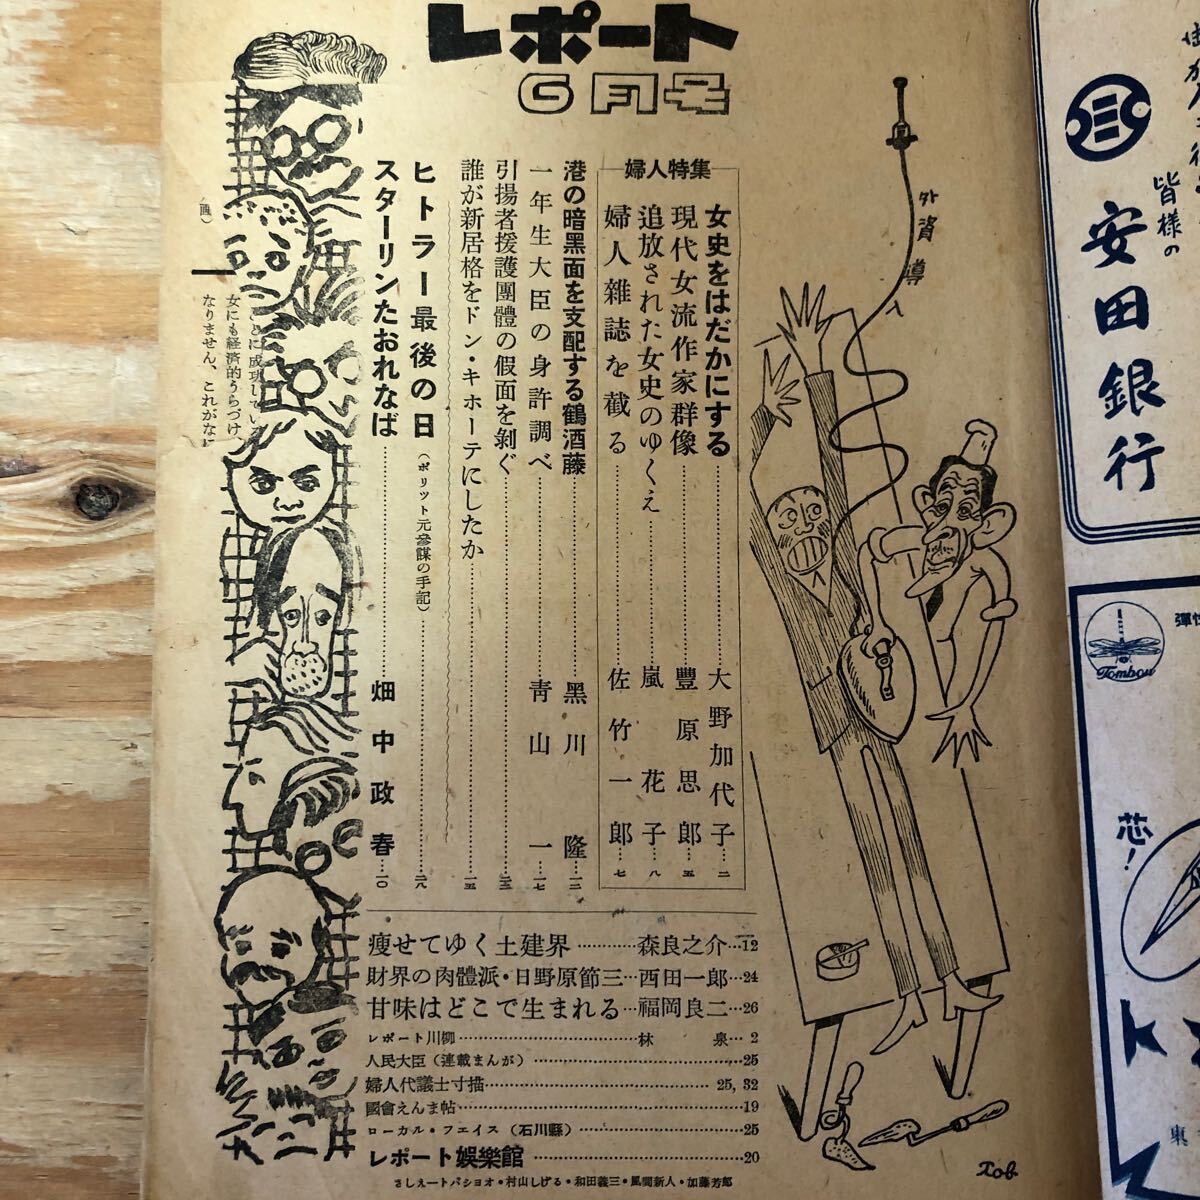 レポート
6月号
外資導入
婦人特集
女史をはだかにする……大野加代子…二
現代女流作家群像……豐原思郎…五
追放された女史のゆくえ……嵐花子…八
婦人雜誌を截る……佐竹一郎…七
港の暗黒面を支配する鶴酒藤……黑川隆…一二
一年生大臣の身許調べ……靑山一…一七
引揚者援護團體の假面を剝ぐ……二三
誰が新居格をドン・キホーテにしたか……一五
ヒトラー最後の日(ポリット元參謀の手記)……二八
スターリンたおれなば……畑中政春…一〇
痩せてゆく土建界……森良之介…12
財界の肉體派・日野原節三…西田一郎…24
甘味はどこで生まれる…福岡良二…26
レポート川柳……林泉…2
人民大臣(連載まんが)……25
婦人代議士寸描……25, 32
國會えんま帖……19
ローカル・フエイス(石川縣)……25
レポート娯樂館……20
さしえートパシヨオ・村山しげる・和田義三・風間新人・加藤芳郎
ことに成功してい
女にも経済的うらづけ
なりません、これがなに
皆様の
安田銀行
Tombow
芯!
東